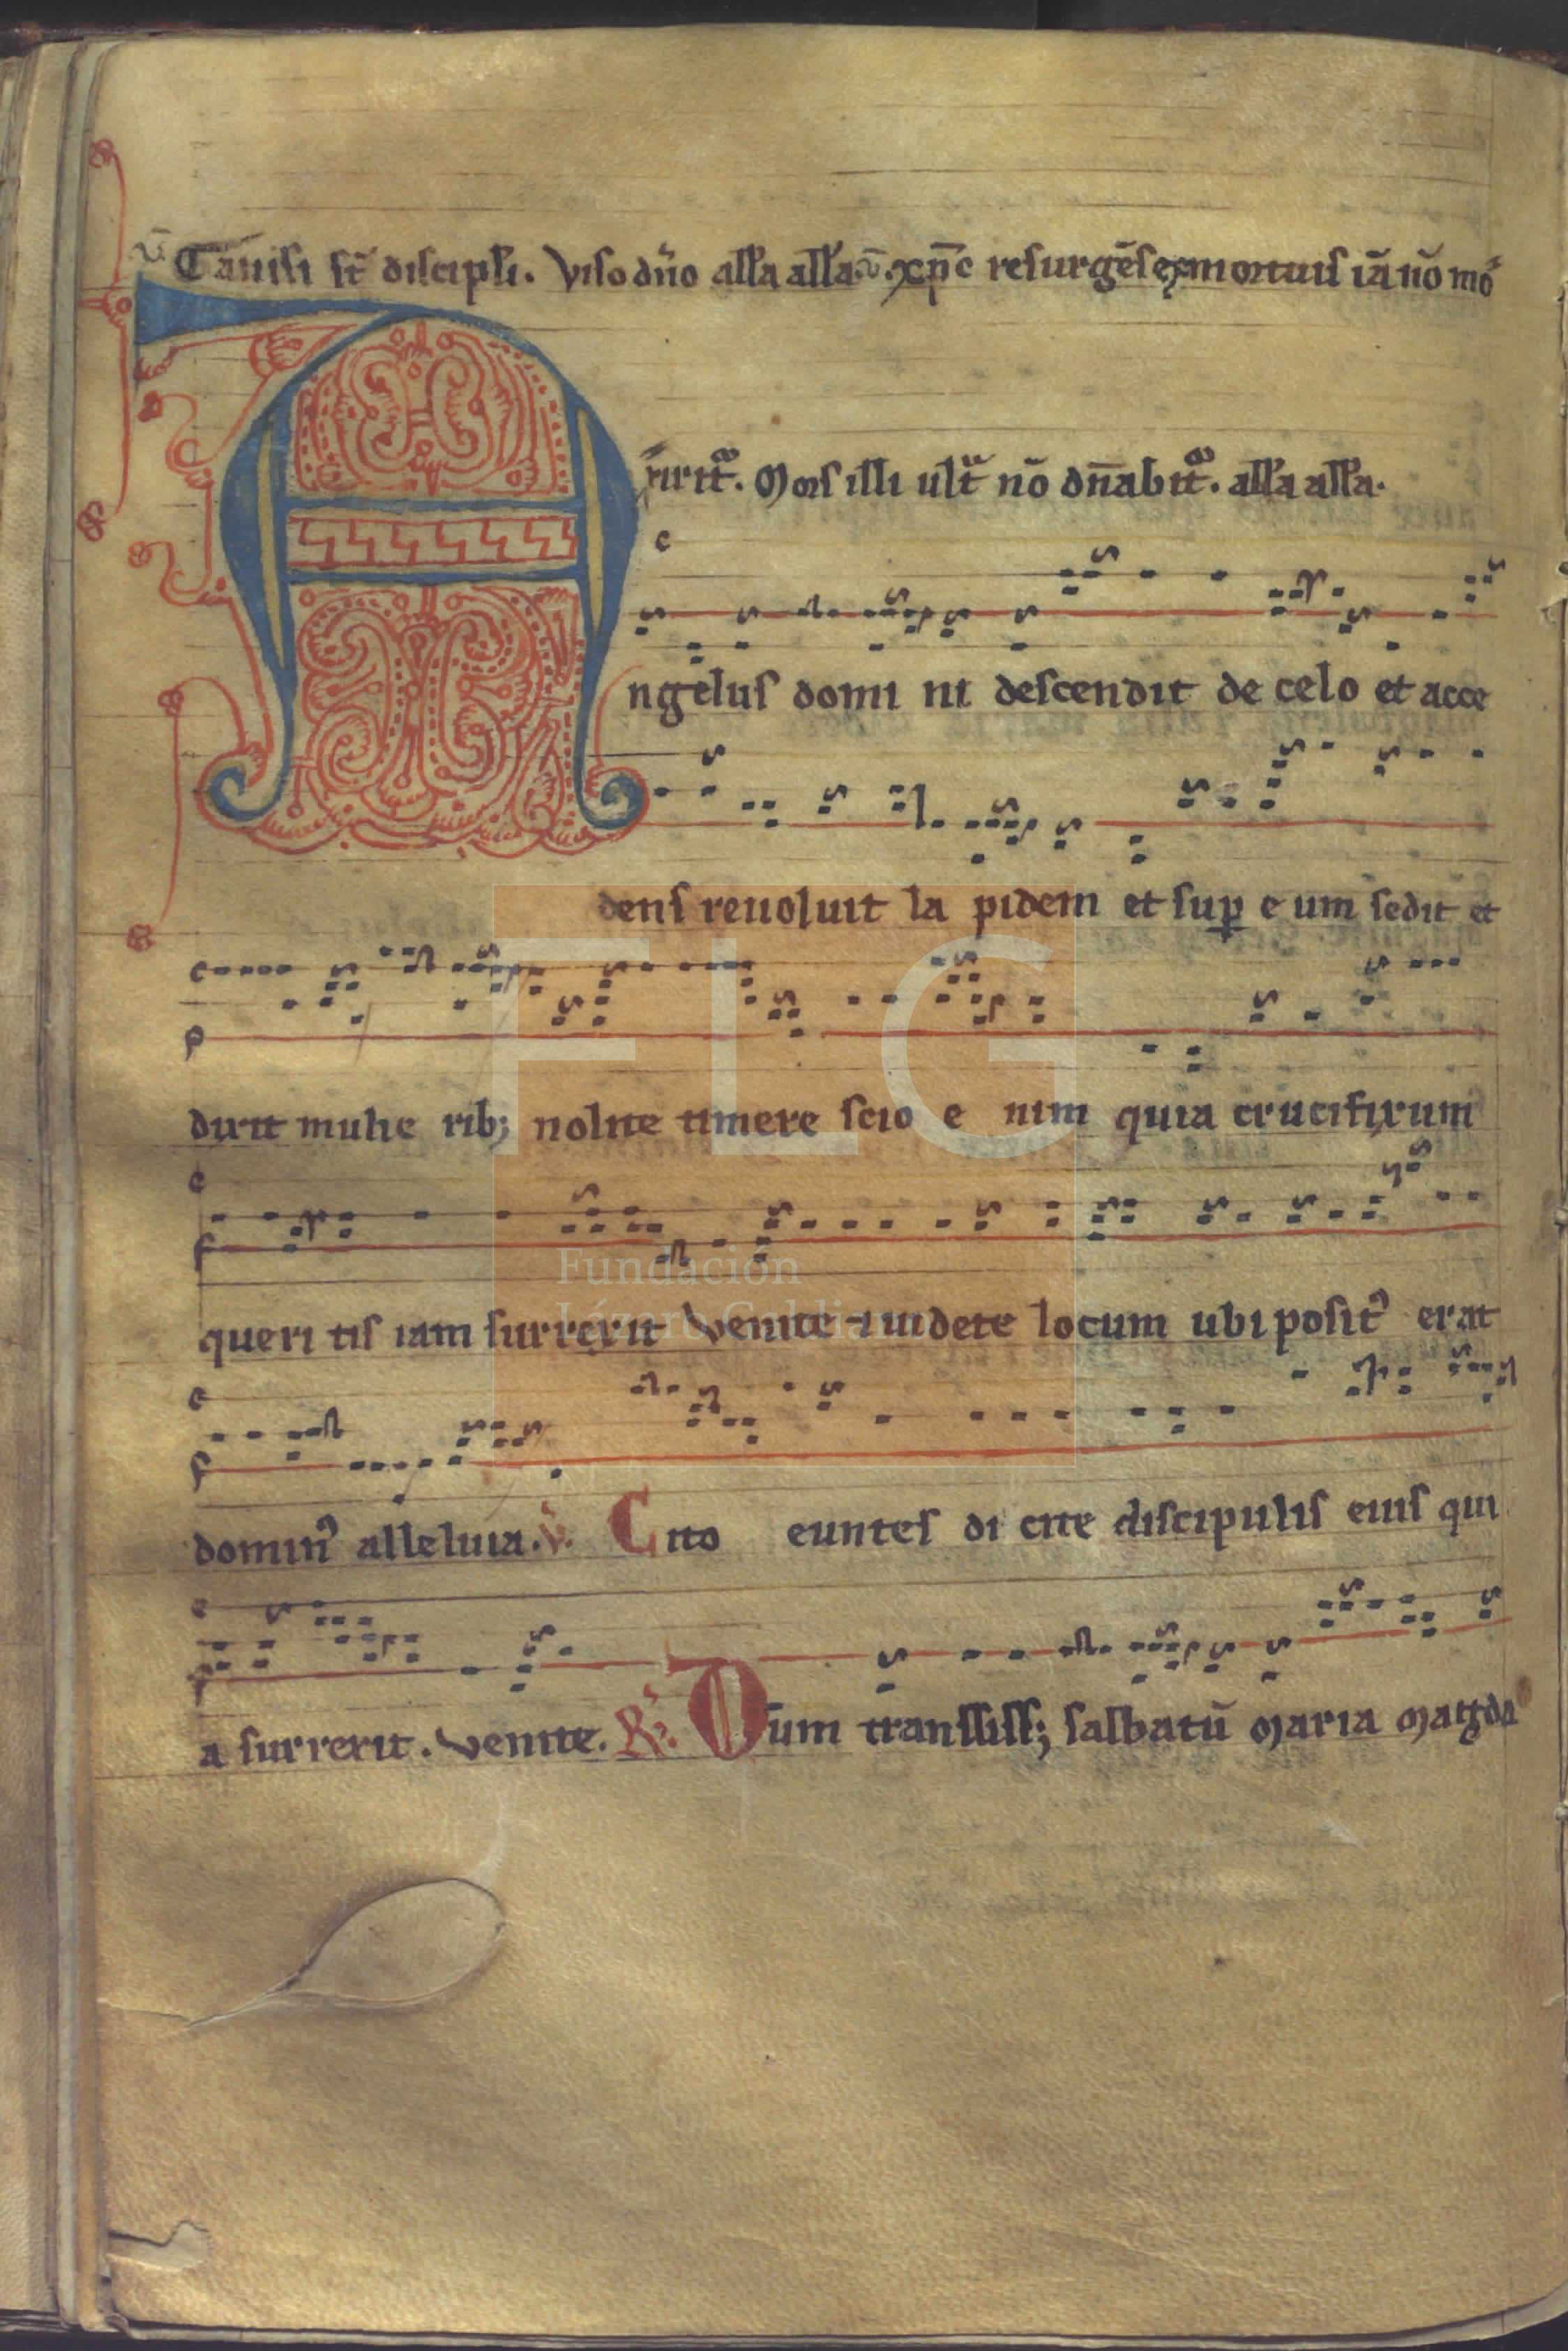 v̄ Gauisi st̄ discipli. Viso dn̄o all'a all'a. v̄. xp̄c resurgēs ex mortuis iā nō mo
rit᷑. Mors illi ult̄ nō dn̄abit᷑. all'a all'a.
Angelus domi ni descendit de celo et acce
dens reuoluit la pidem et sup̲ e um sedit et
dixit mulie rib; nolite timere scio e nim quia crucifixum
queri tis iam surrexit Venite ⁊ uidete locum ubi posit᾿ erat
domin᾿ alleluia. V̄. Cito euntes di cite discipulis eius qui
a surrexit. Venite. R̄. Dum transiss; sabbatū Maria Magda
FLG
Fundación
Lázaro Galdiano